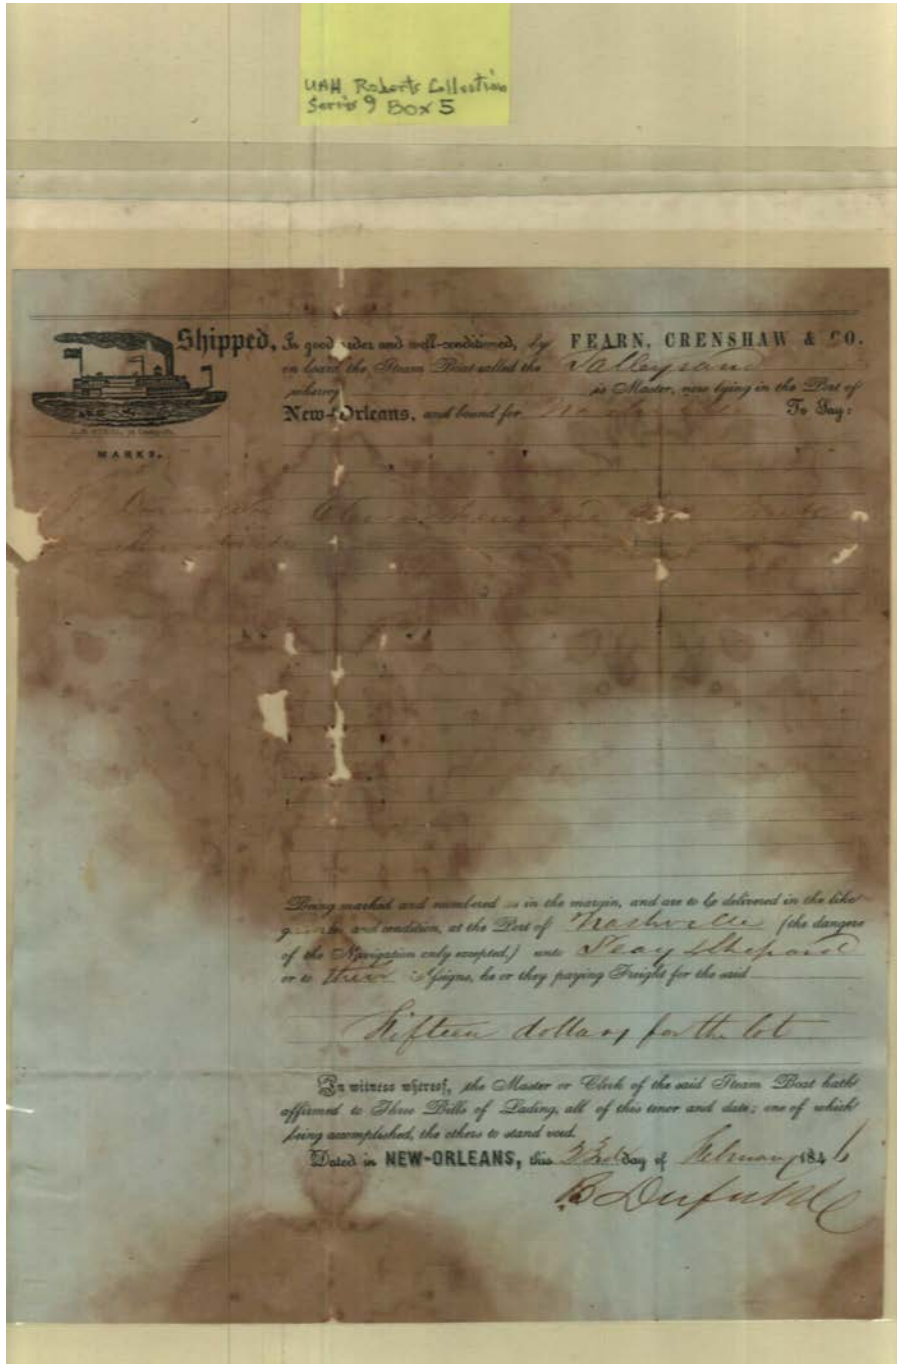 UAH Roberts Collection
Series 9 Box 5
Shipped, In good order and well-conditioned, by FEARN, CRENSHAW & CO.
on board the Steam Boat called the Talleyrand
whereof is Master, now lying in the Port of
New-Orleans, and bound for Nashville To Say:
MARKS.
Being marked and numbered as in the margin, and are to be delivered in the like
good order and condition, at the Port of Nashville (the dangers
of the Navigation only excepted,) unto Seay & Shepard
or to their Assigns, he or they paying Freight for the said
Fifteen dollars for the lot
In witness whereof, the Master or Clerk of the said Steam Boat hath
affirmed to Three Bills of Lading, all of this tenor and date; one of which
being accomplished, the others to stand void.
Dated in NEW-ORLEANS, this 23rd day of February 1846
B